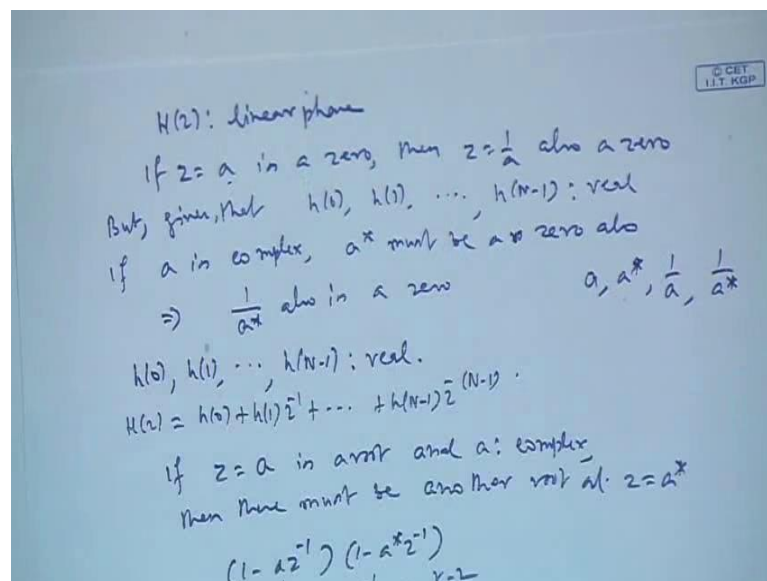 © CET
I.I.T. KGP
H(z): linear phase
If z = a is a zero, then z = 1/a also a zero
But, given, that h(0), h(1), ..., h(N-1): real
If a is complex, a* must be a zero also
⇒ 1/a* also is a zero
a, a*, 1/a, 1/a*
h(0), h(1), ..., h(N-1): real.
H(z) = h(0) + h(1) z^-1 + ... + h(N-1) z^-(N-1).
If z = a is a root and a: complex,
then there must be another root at z = a*
(1 - a z^-1) (1 - a* z^-1)